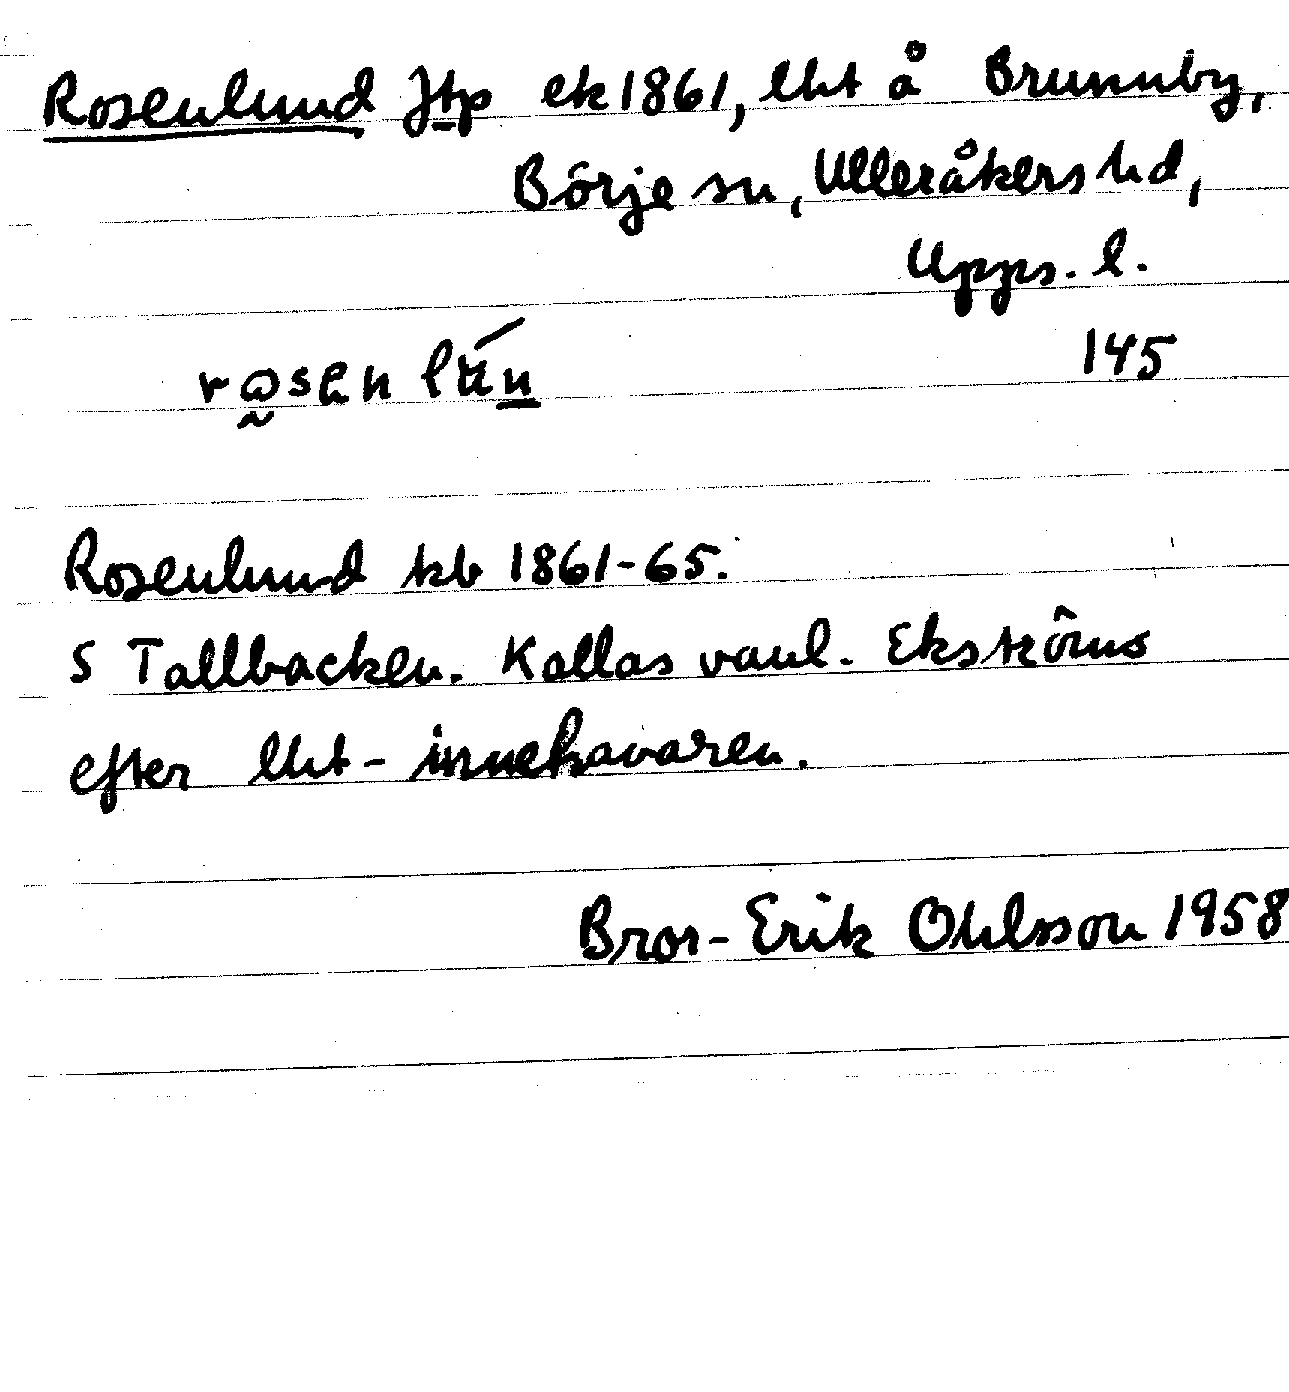 Rosenlund Jtp ek 1861, lht å Brunnby,
Börje sn, Ulleråkers hd,
Upps. l.
145
Rosenlund kb 1861-65.
S Tallbacken. Kallas vanl. Ekströms
efter lht-innehavaren.
Bror-Erik Ohlsson 1958